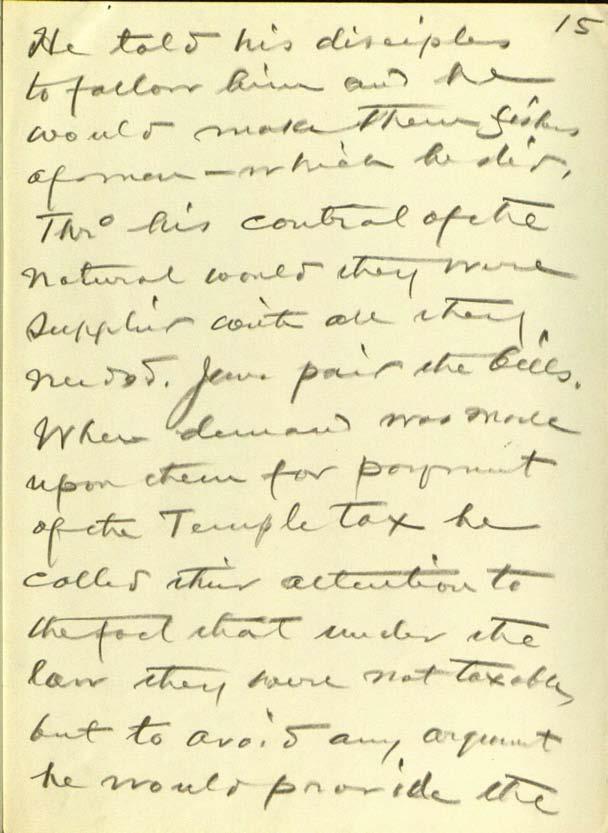 15
He told his disciples
to follow him and he
would make them fishers
of men - which he did.
Thro his control of the
natural world they were
supplied with all they
needed. Jesus paid the bills.
When demand was made
upon them for payment
of the Temple tax he
called their attention to
the fact that under the
law they were not taxable,
but to avoid any argument
he would provide the